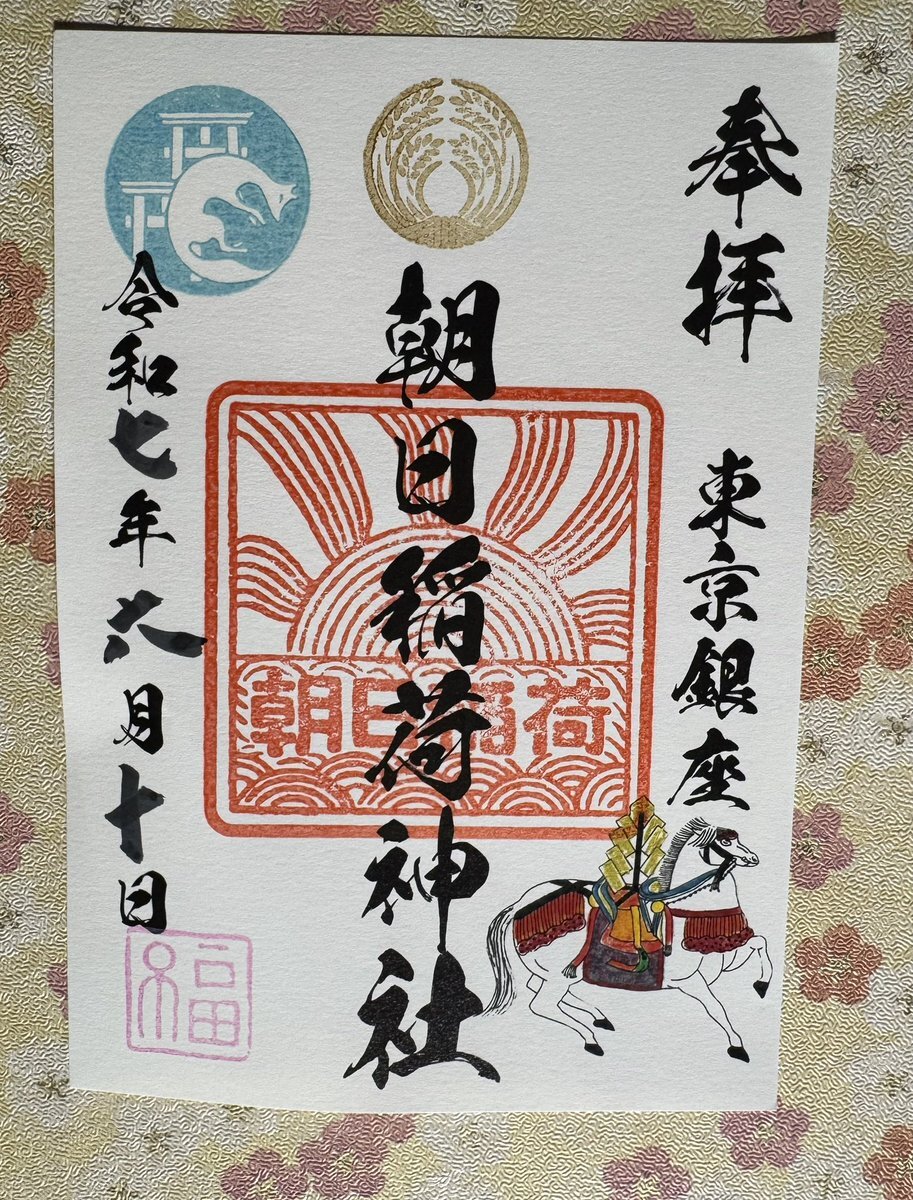 奉拝
東京銀座
朝日稲荷神社
朝日稲荷
令和七年六月十日
福